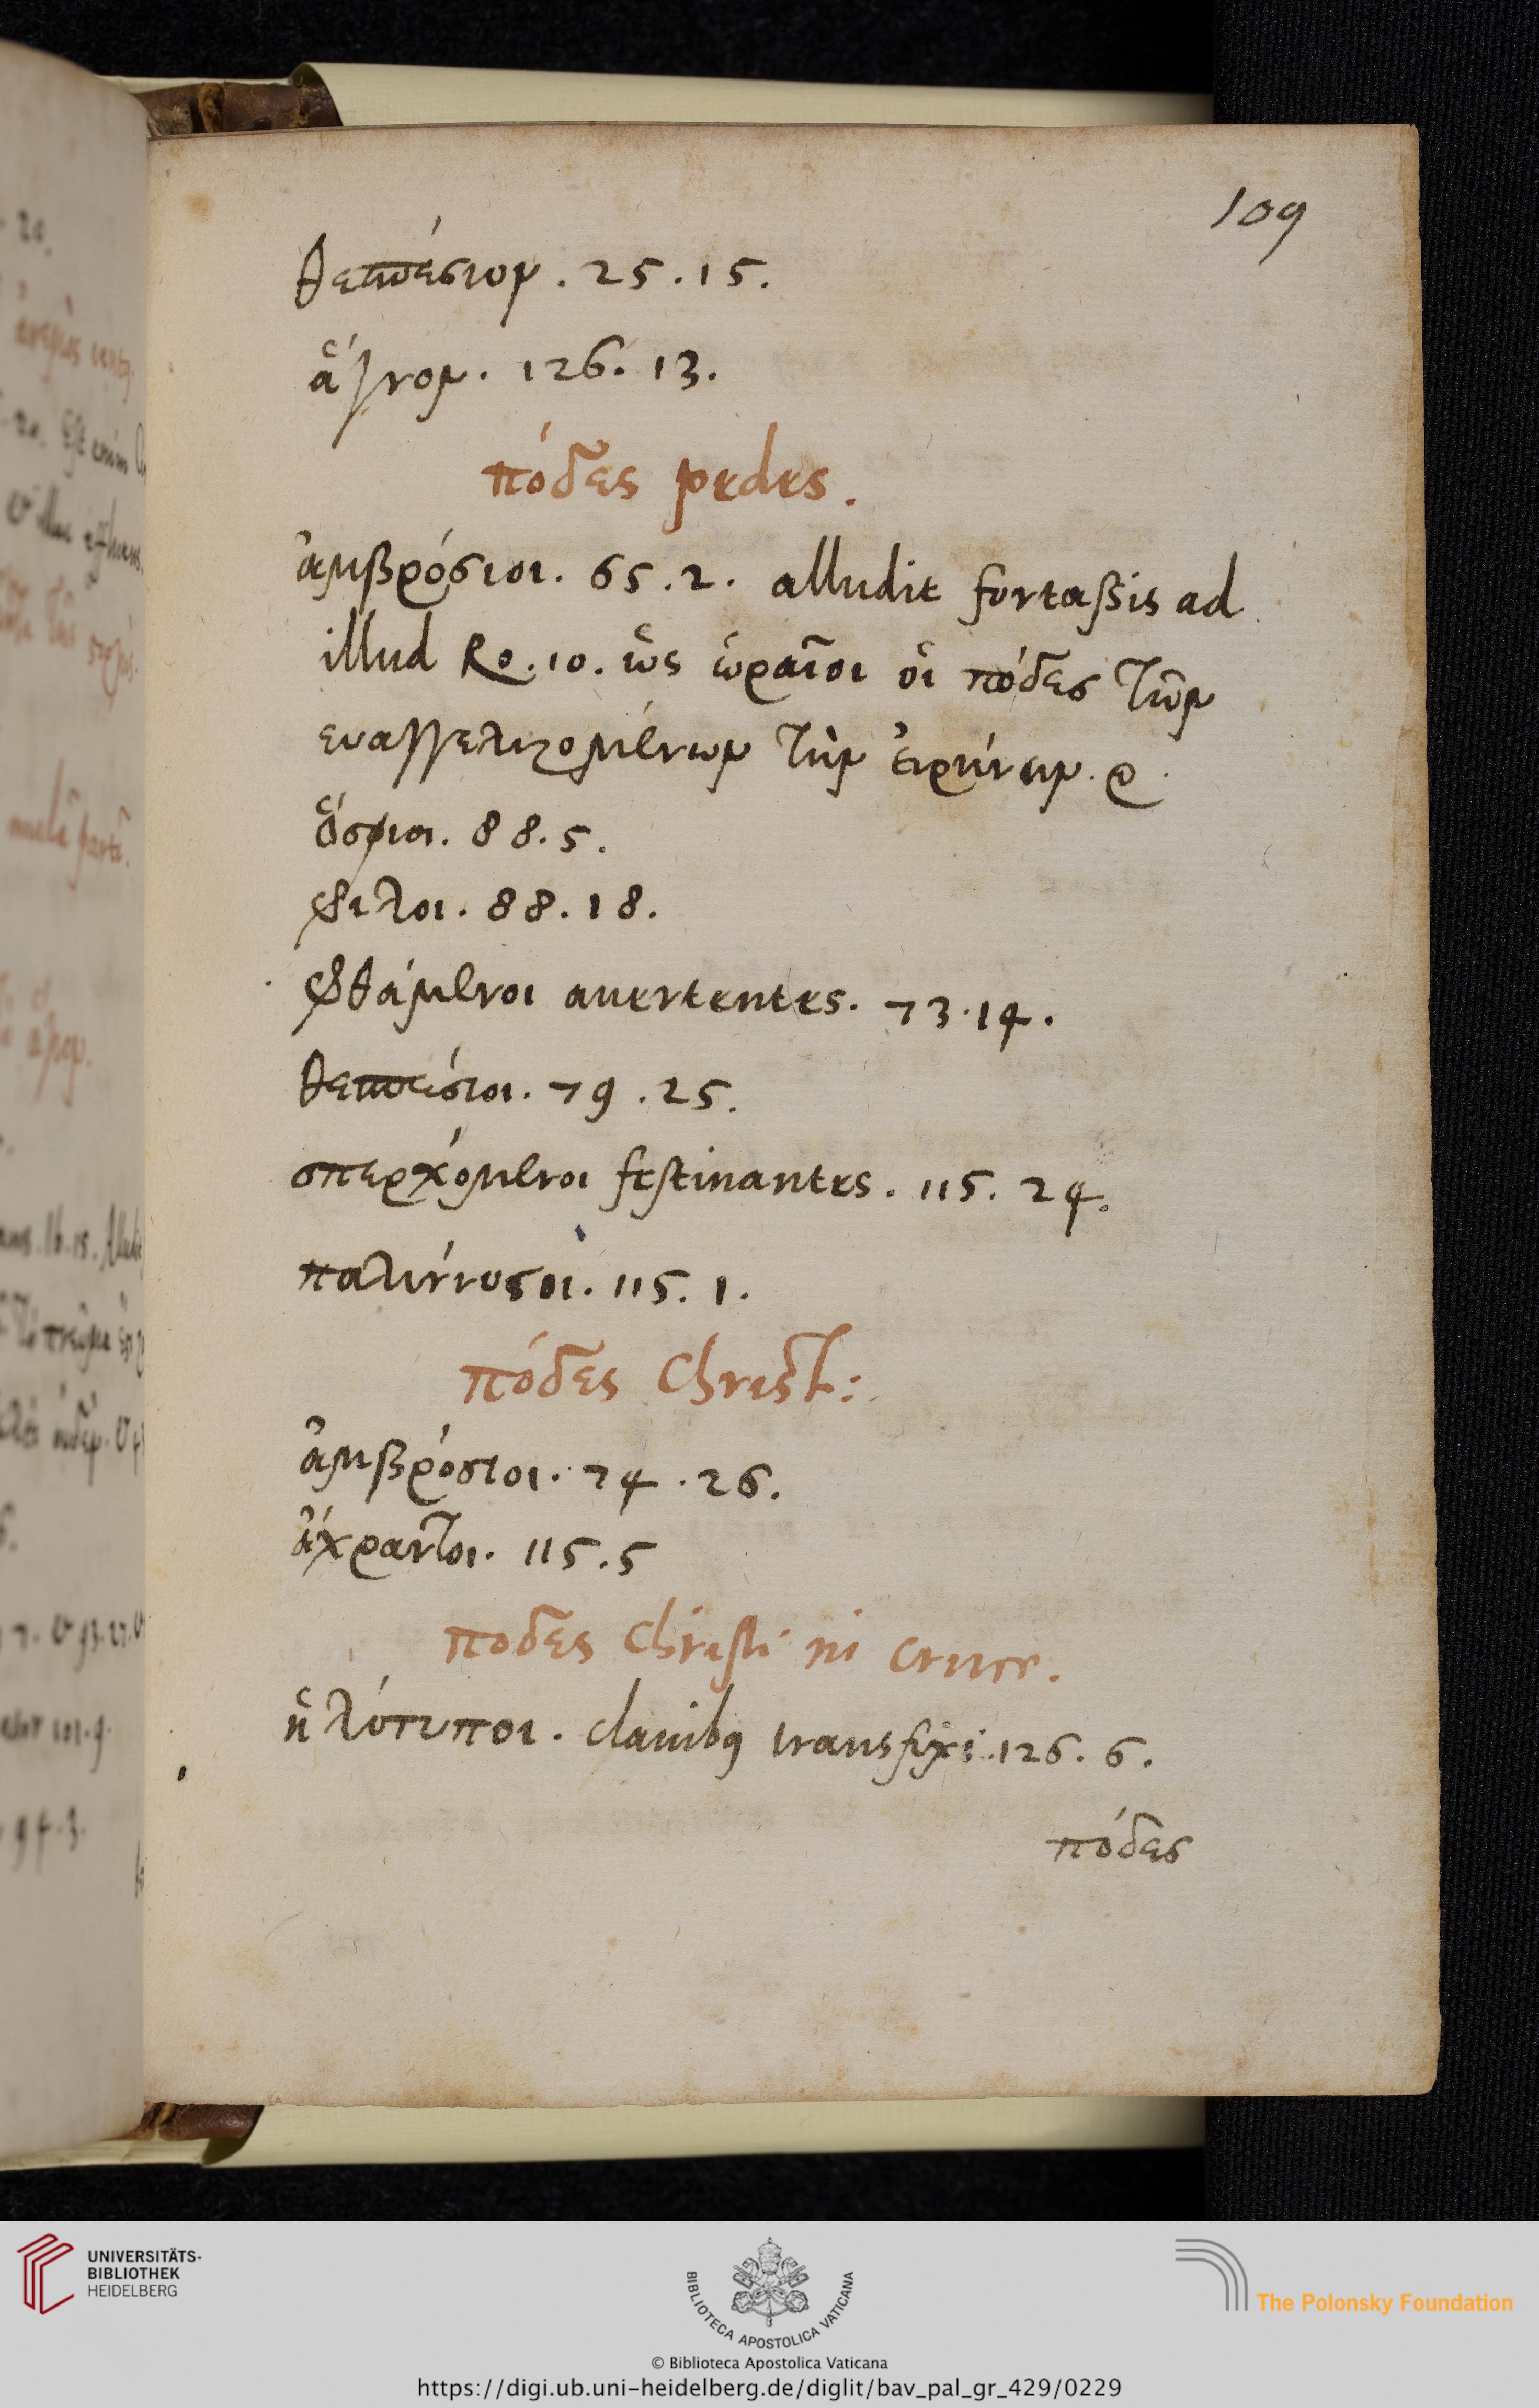 109
θεσπέσιον . 25 . 15 .
ἅγνον . 126 . 13 .
πόδες pedes .
ἀμβρόσιοι . 65 . 2 . alludit fortaßis ad
illud Ro . 10 . ὡς ὡραῖοι ὁι πόδες τῶν
ευαγγελιζομένων τὴν ἐιρήνην .
ὅσιοι . 88 . 5 .
φιλοι . 88 . 18 .
φθάμενοι auertentes . 73 . 14 .
θεσπεσίοι . 79 . 25 .
σπερχόμενοι festinantes . 115 . 24 .
παλίννοσοι . 115 . 1 .
πόδες Christi :
ἀμβρόσιοι . 74 . 26 .
ἄχραντοι . 115 . 5
ποδες Christi in cruce .
ἡλότυποι . clauibꝫ transfixi . 126 . 6 .
πόδες
UNIVERSITÄTS-
BIBLIOTHEK
HEIDELBERG
BIBLIOTECA APOSTOLICA VATICANA
The Polonsky Foundation
© Biblioteca Apostolica Vaticana
https://digi.ub.uni-heidelberg.de/diglit/bav_pal_gr_429/0229